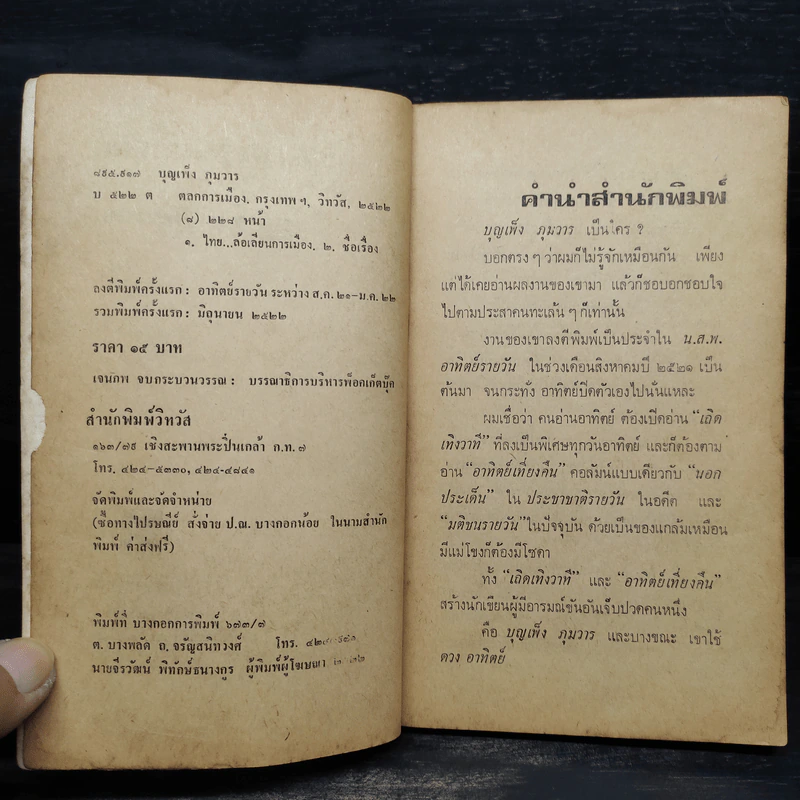 ๘๙๕.๙๑๗ บุญเพ็ง ภุมวาร
บ ๕๒๒ ต ตลกการเมือง. กรุงเทพ ฯ, วิทวัส, ๒๕๒๒
(๘) ๒๒๘ หน้า
๑. ไทย...ล้อเลียนการเมือง. ๒. ชื่อเรื่อง
ลงตีพิมพ์ครั้งแรก : อาทิตย์รายวัน ระหว่าง ส.ค. ๒๑-ม.ค. ๒๒
รวมพิมพ์ครั้งแรก : มิถุนายน ๒๕๒๒
ราคา ๑๕ บาท
เจนภพ จบกระบวนวรรณ : บรรณาธิการบริหารพ็อคเก็ตบุ๊ค
สำนักพิมพ์วิทวัส
๑๖๓/๗๙ เชิงสะพานพระปิ่นเกล้า ก.ท. ๗
โทร. ๔๒๔-๕๓๓๐, ๔๒๔-๔๘๔๑
จัดพิมพ์และจัดจำหน่าย
(ซื้อทางไปรษณีย์ สั่งจ่าย ป.ณ. บางกอกน้อย ในนามสำนัก
พิมพ์ ค่าส่งฟรี)
พิมพ์ที่ บางกอกการพิมพ์ ๖๗๓/๗
ต. บางพลัด ถ. จรัญสนิทวงศ์ โทร.
นายจีรวัฒน์ พิทักษ์ธนางกูร ผู้พิมพ์ผู้โฆษณา
คำนำสำนักพิมพ์
บุญเพ็ง ภุมวาร เป็นใคร ?
บอกตรง ๆ ว่าผมก็ไม่รู้จักเหมือนกัน เพียง
แต่ได้เคยอ่านผลงานของเขามา แล้วก็ชอบอกชอบใจ
ไปตามประสาคนทะเล้น ๆ ก็เท่านั้น
งานของเขาลงตีพิมพ์เป็นประจำใน น.ส.พ.
อาทิตย์รายวัน ในช่วงเดือนสิงหาคมปี ๒๕๒๑ เป็น
ต้นมา จนกระทั่ง อาทิตย์ปิดตัวเองไปนั่นแหละ
ผมเชื่อว่า คนอ่านอาทิตย์ ต้องเปิดอ่าน “เถิด
เทิงวาที” ที่ลงเป็นพิเศษทุกวันอาทิตย์ และก็ต้องตาม
อ่าน “อาทิตย์เที่ยงคืน” คอลัมน์แบบเดียวกับ “นอก
ประเด็น” ใน ประชาชาติรายวัน ในอดีต และ
“มติชนรายวัน” ในปัจจุบัน ด้วยเป็นของแกล้มเหมือน
มีแม่โขงก็ต้องมีโซดา
ทั้ง “เถิดเทิงวาที” และ “อาทิตย์เที่ยงคืน”
สร้างนักเขียนผู้มีอารมณ์ขันอันเจ็บปวดคนหนึ่ง
คือ บุญเพ็ง ภุมวาร และบางขณะ เขาใช้
ดวง อาทิตย์